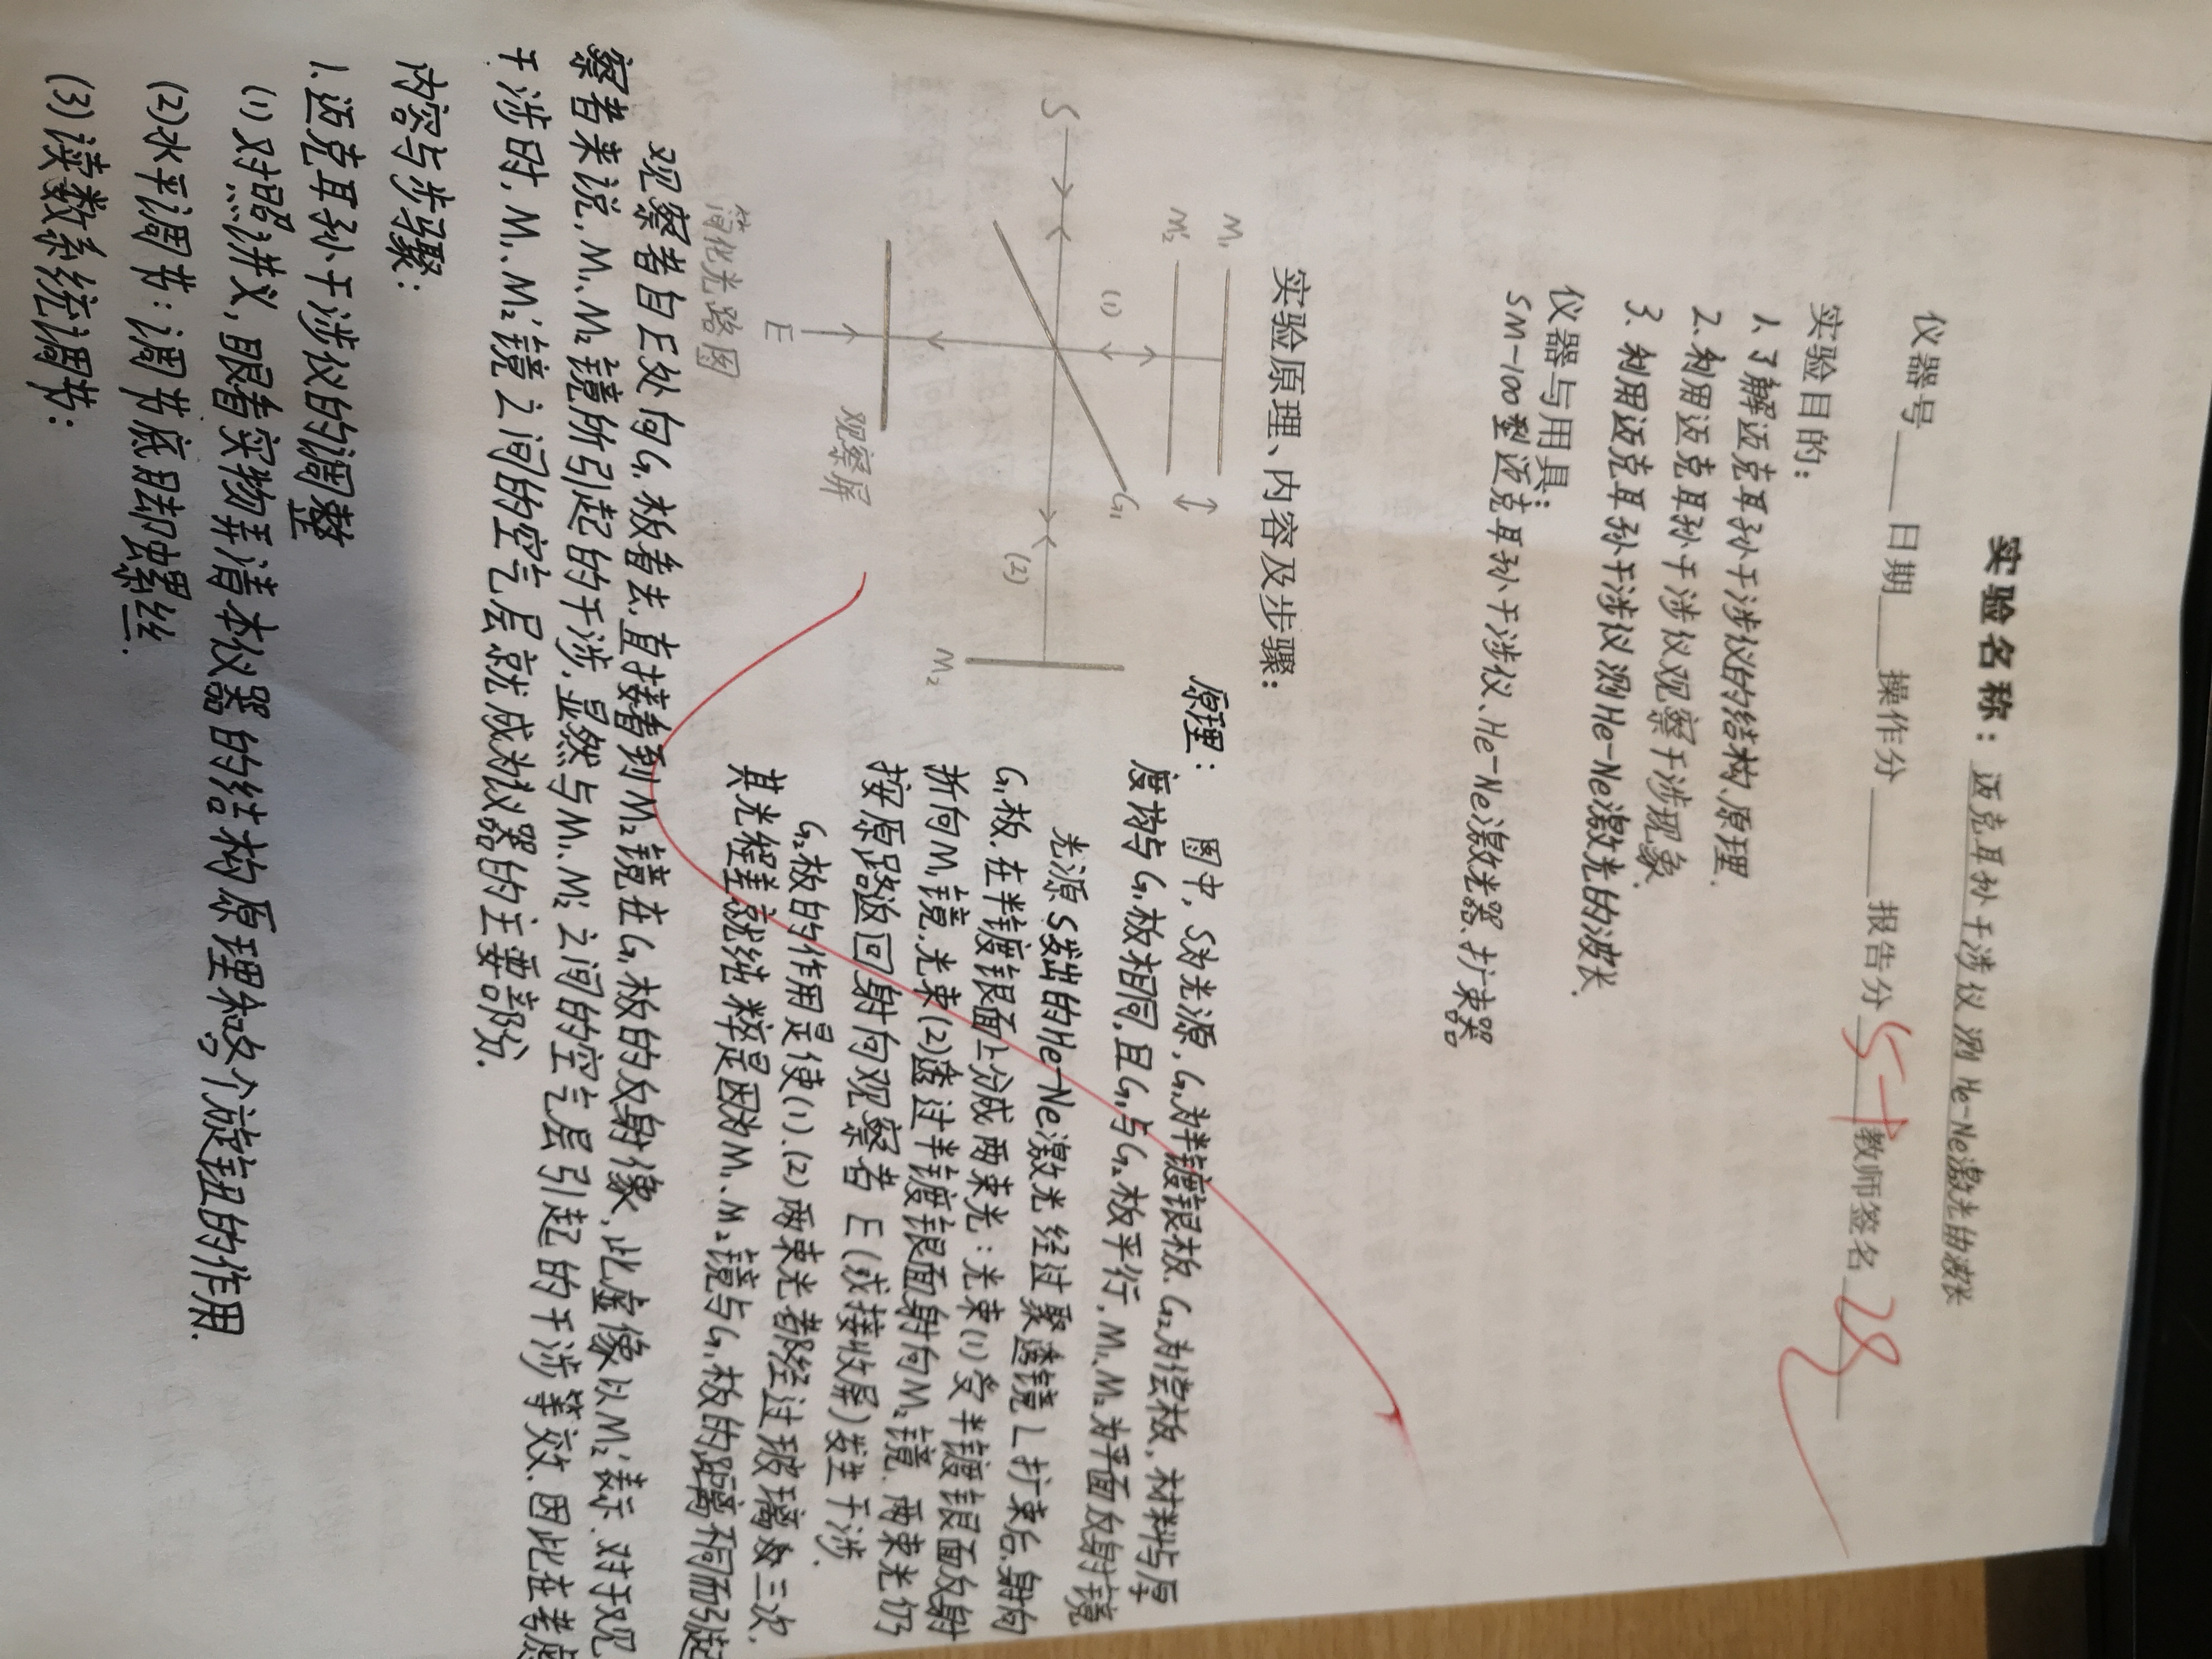 实验名称：迈克耳孙干涉仪测He-Ne激光的波长
仪器号 日期 操作分 报告分 5+ 教师签名
实验目的：
1.了解迈克耳孙干涉仪的结构、原理.
2.利用迈克耳孙干涉仪观察干涉现象.
3.利用迈克耳孙干涉仪测He-Ne激光的波长.
仪器与用具：
SM-100型迈克耳孙干涉仪、He-Ne激光器、扩束器
实验原理、内容及步骤：
M₁
M₂′
S
(1)
G₁
(2)
M₂
观察屏
E
简化光路图
原理：
图中，S为光源，G₁为半镀银板、G₂为偿板，材料与厚
度均与G₁板相同，且G₁与G₂板平行，M₁、M₂为平面反射镜
光源S发出的He-Ne激光经过聚透镜L扩束后，射向
G₁板.在半镀银面上分成两束光：光束(1)受半镀银面反射
折向M₁镜，光束(2)透过半镀银面射向M₂镜.两束光仍
按原路返回射向观察者E(或接收屏)发生干涉.
G₂板的作用是使(1).(2)两束光都经过玻璃三次.
其光程差就纯粹是因为M₁、M₂镜与G₁板的距离不同而引起
观察者自E处向G₁板看去，直接看到M₂镜在G₁板的反射像，此虚像以M₂′表示.对于观
察者来说，M₁、M₂镜所引起的干涉，显然与M₁、M₂′之间的空气层引起的干涉等效.因此在考虑
干涉时，M₁、M₂′镜之间的空气层就成为仪器的主要部分.
内容与步骤：
1.迈克耳孙干涉仪的调整
(1)对照讲义，眼看实物弄清本仪器的结构原理和各个旋钮的作用.
(2)水平调节：调节底脚螺丝.
(3)读数系统调节：